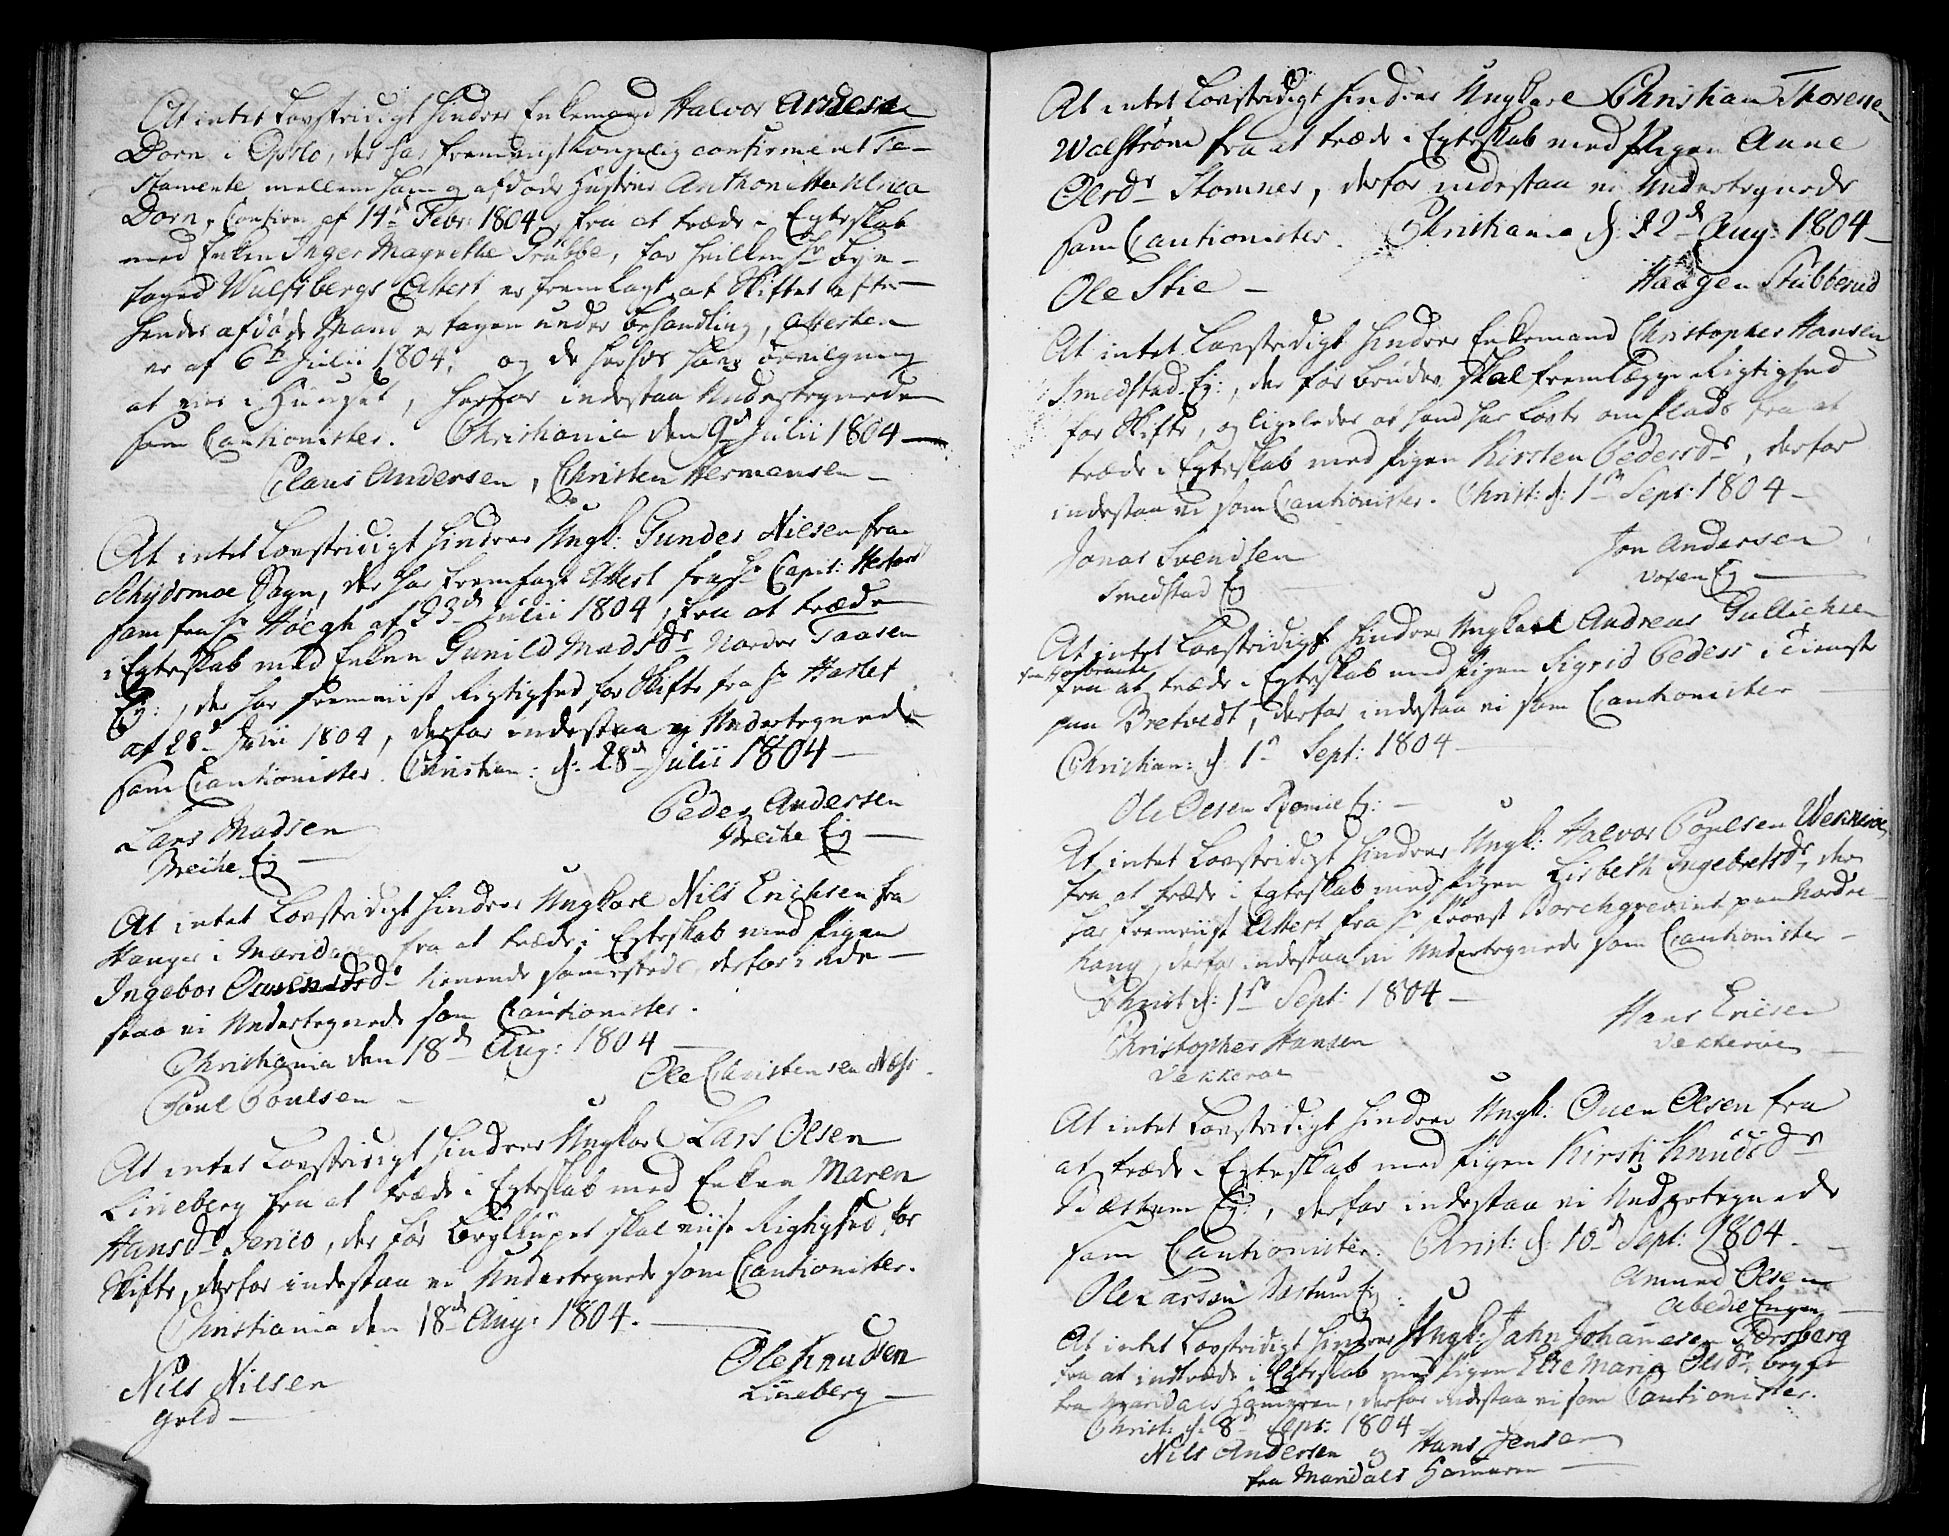 At intet Lovstridigt hindrer Enkemand Halvor Andersen
Dorn i Opslo, der har fremviist Kongelig confirmeret Te-
stamente mellem ham og afdøde Hustrue Anthonitta Ulrica
Dorn, Confirm: af 14de Febr: 1804, fra at træde i Egteskab
med Enken Inger Magrethe Grubbe, for hvilken Hr bye-
foged Wulfsbergs Attest er fremlagt, at Skiftet efter
hendes afdøde Mand er tagen under behandling, Attesten
er af 6te Julii 1804, og de herfor haver bevilgning
at vies i Huuset, herfor indestaa Undertegnede
som Cautionister. Christiania den 9de Julii 1804
Claus Andersen, Christen Hermensen
At intet Lovstridigt hindrer Ungk: Gunder Nielsen fra
Schydsmoe Sogn, der har fremlagt Attest fra Hr Capit:
som fra Hr Høegh af 23de Julii 1804, fra at træde
i Egteskab med Enken Gunild Madsdr Nordre Taasen
Eg:, der har fremviist Rigtighed for Skifte fra Hr
af 28de Julii 1804, derfor indestaa vi Undertegnede
som Cautionister. Christian: d: 28de Julii 1804
Lars Madsen Peder Andersen
Breche Eg Breche Eg
At intet Lovstridigt hindrer Ungkarl Nils Erichsen fra
Hanger i Maridalen fra at træde i Egteskab med Pigen
Ingebor tienende sammesteds, derfor inde-
staa vi Undertegnede som Cautionister.
Christiania den 18de Aug: 1804
Poul Poulsen Ole Christensen
At intet Lovstridigt hindrer Ungkarl Lars Olsen
Lineberg fra at træde i Egteskab med Enken Maren
Hansdr Jerico, der før Brylluppet skal viise Rigtighed for
Skifte, derfor indestaa vi Undertegnede som Cautionister.
Christiania den 18de Aug: 1804.
Nils Nilsen Ole Knudsen
Lineberg
At intet Lovstridigt hindrer Ungkarl Christian Thoresen
Walstrøm fra at træde i Egteskab med Pigen Anne
Olesdr Stomner, derfor indestaa vi Undertegnede
som Cautionister. Christiania d: 22de Aug: 1804
Ole Stie Haagen Stubberud
At intet Lovstridigt hindrer Enkemand Christopher Hansen
Smedstad Eg:, der før bruder skal fremlægge Rigtighed
for Skifte, og ligeledes at hand har Lovs omflade fra at
træde i Egteskab med Pigen Kirsten Pedersdr, derfor
indestaa vi som Cautionister. Christ: d: 1te Sept: 1804
Jonas Svendsen Jon Andersen
Smedstad Eg Voxen Eg
At intet Lovstridigt hindrer Ungkarl Andreas Gullichsen
fra at træde i Egteskab med Pigen Sigrid Peders i Tieneste
paa Bretvedt, derfor indestaa vi som Cautionister
Christian: d: 1te Sept: 1804
Ole Olsen Eg:
At intet Lovstridigt hindrer Ungk: Halvor Poulsen
fra at træde i Egteskab med Pigen Lisbeth Ingebretsdr, der
har fremviist Attest fra Hr Provst Borchgrevink paa Nordre
Haug, derfor indestaa vi Undertegnede som Cautionister
Christ: d: 1te Sept: 1804
Christopher Hansen Hans Ericsen
Vekkeroe Vekkeroe
At intet Lovstridigt hindrer Ungk: Ouen Olsen fra
at træde i Egteskab med Pigen Kirsti Knudsdr
Eg:, derfor indestaa vi Undertegnede
som Cautionister. Christ: d: 10de Sept: 1804.
Ole Larsen Eg Amund Olsen
Abedie Engen
At intet Lovstridigt hindrer Ungk: Jahn Johannesen Forsberg
fra at indtræde i Egteskab med Pigen Else Maria Olsdr, begge
fra Maridals Hammeren, derfor indestaa vi som Cautionister.
Christ: d: 8de Sept: 1804
Nils Andersen og Hans Jensen
fra Maridals Hammeren